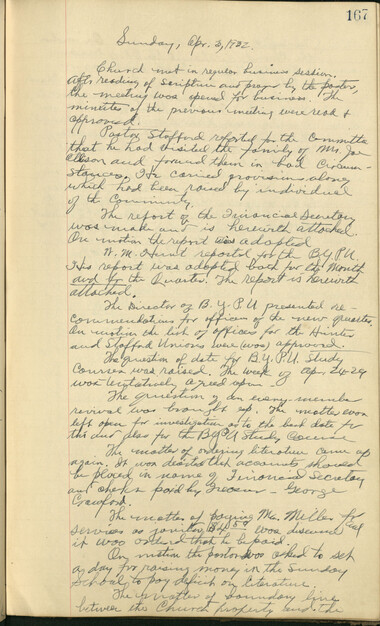 167
Sunday, Apr. 3, 1932.
Church met in regular business session.
After reading of scripture and prayer by the pastor,
the meeting was opened for business. The
minutes of the previous meeting were read &
approved.
Pastor Stafford reported for the Committee
that he had visited the family of Mr. Joe
and found them in bad Circum-
stances, He carried provisions along
which had been raised by individual
of the Community.
The report of the Financial Secretary
was made and is herewith attached.
On motion the report was adopted
W. M. Hunt reported for the B.Y.P.U.
His report was adopted both for the Month
and for the Quarter. The report is herewith
attached.
The Director of B.Y.P.U presented re-
commendations for officers of the new quarter.
On motion the list of officers for the Hunter
and Stafford Unions were (was) approved.
The question of date for B.Y.P.U. Study
Courses was raised. The week of Apr 24-29
was tentatively agreed upon.
The question of an every-member
revival was brought up. The matter was
left open for investigation as to the best date for
this and also for the B.Y.P.U Study Course
The matter of ordering literature came up
again. It was decided that accounts should
be placed in name of Financial Secretary
and checks paid by Treasurer - George
Crawford.
The matter of paying Mr. Miller for
services as janitor was discussed
it was ordered that he be paid.
On motion the pastor was asked to set
a day for raising money in the Sunday
School to pay deficit on literature.
The matter of boundary line
between the Church property and the